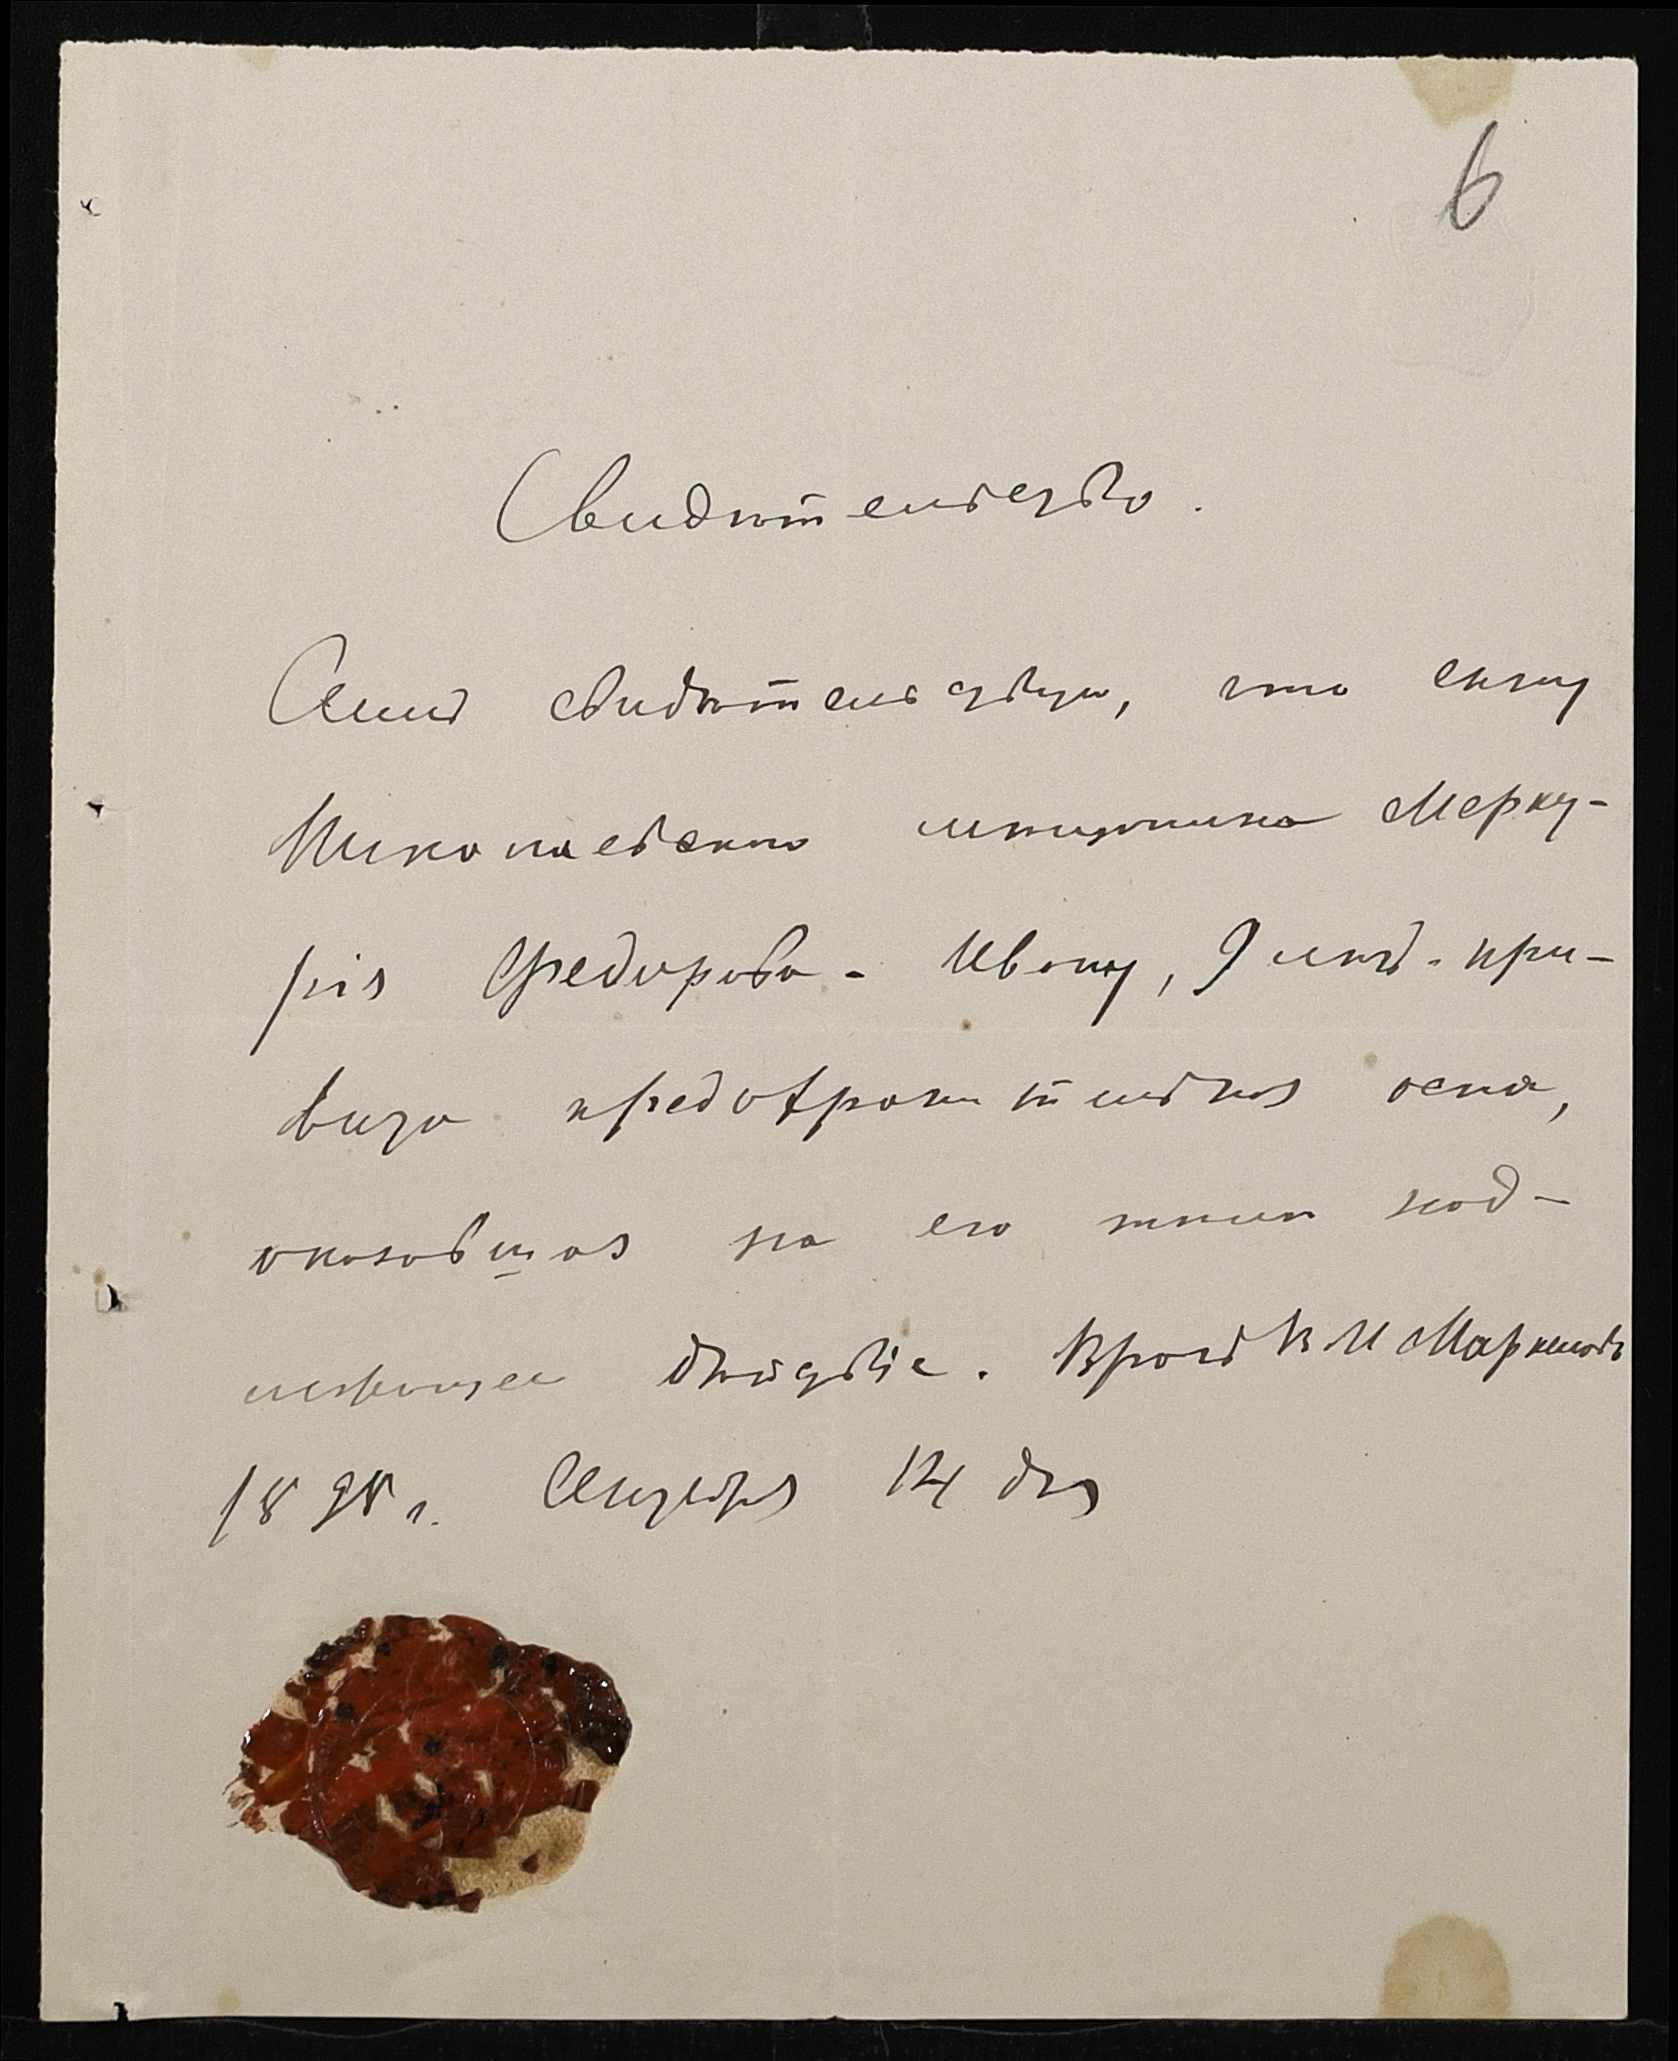 6
Свидѣтельство.
Симъ свидѣтельствую, что сыну
Николаевскаго мѣщанина Мерку-
рія Федорова - Ивану, 9 лѣтъ - при-
вита предохранительная оспа,
оказавшая на его тѣлѣ над-
лежащее дѣйствіе. Врачъ В И
1898 г. Сентября 14 дня